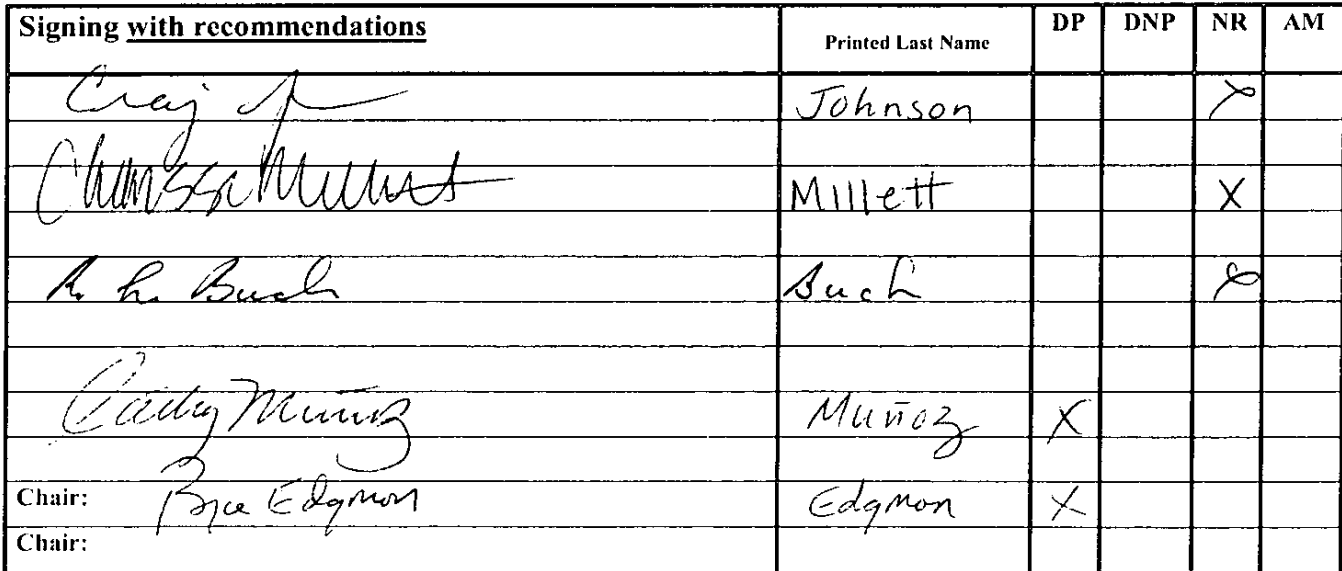 Signing with recommendations Printed Last Name DP DNP NR AM
Craig Johnson X
Charisse Millett Millett X
R. L. Buch Buch X
Cathy Muñoz Muñoz X
Chair: Bryce Edgmon Edgmon X
Chair: